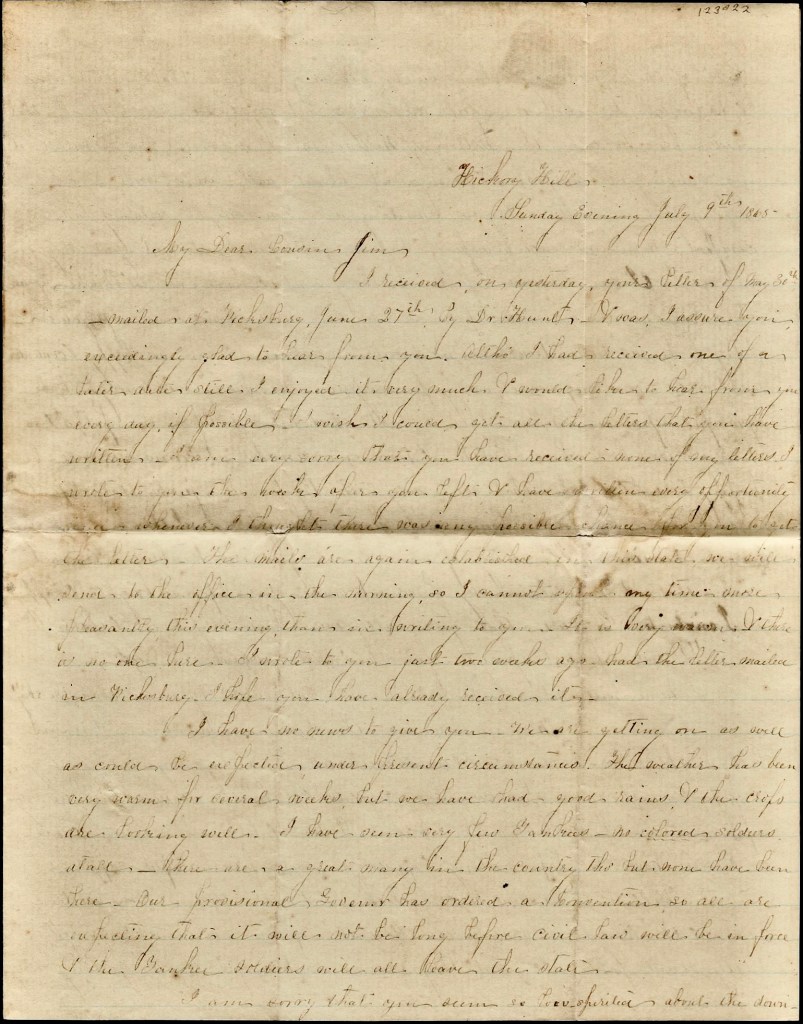 123922
Hickory Hill
Sunday Evening July 9th 1865
My Dear Cousin Jim
I received, on yesterday, your letter of May 30th
mailed at Vicksburg, June 27th, by Dr. Hunt. I was, I assure you,
exceedingly glad to hear from you, altho' I had received one of a
later date still I enjoyed it very much. I would like to hear from you
every day, if possible. I wish I could get all the letters that you have
written. I am very sorry that you have received none of my letters. I
wrote to you the week after you left & have written every opportunity
whenever I thought there was any possible chance for you to get
the letter. The mails are again established in this state, we will
send to the office in the morning, so I cannot spend my time more
pleasantly this evening, than in writing to you. It is very warm & there
is no one here. I wrote to you just two weeks ago had the letter mailed
in Vicksburg. I hope you have already received it.
I have no news to give you. We are getting on as well
as could be expected, under present circumstances. The weather has been
very warm for several weeks, but we have had good rains, & the crops
are looking well. I have seen very few Yankees - no colored soldiers
atall - there are a great many in the country tho' but none have been
here - Our provisional Govenor has ordered a convention so all are
expecting that it will not be long before civil law will be in force
& the Yankee soldiers will all leave the state.
I am sorry that you seem so low-spirited about the down-